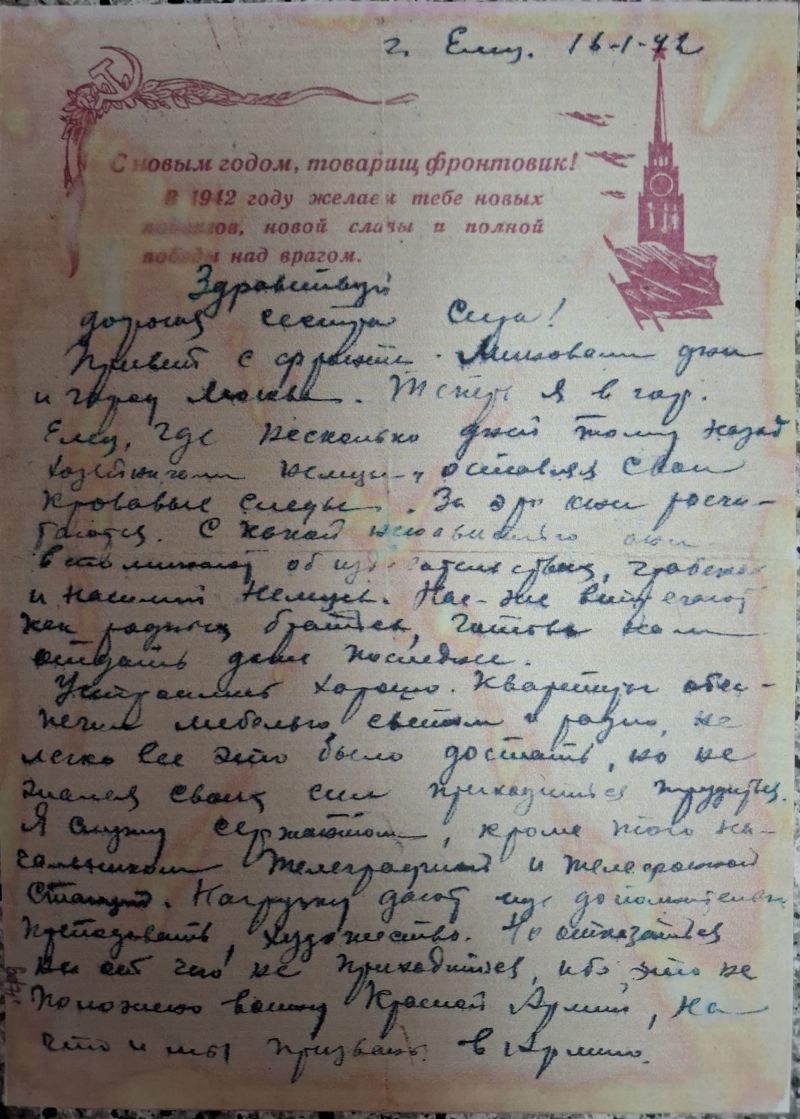 г. Елец. 16-1-42
С новым годом, товарищ фронтовик!
В 1942 году желаем тебе новых
подвигов, новой славы и полной
победы над врагом.
Здравствуй
дорогая сестра
Привет с фронта. Миновали
и город Москва. Теперь я в гор.
Елец, где несколько дней тому назад
хозяйничали немцы, оставляя свои
кровавые следы. За это они
С какой они
вспоминают об издевательствах, грабежах
и насилий немцев. Нас-же встречают
как родных братьев, готовы нам
отдать даже последнее.
Устроились хорошо. Квартиры обес-
печили мебелью, светом и радио, не
легко все это было достать, но не
своих сил приходиться трудиться.
Я служу сержантом, кроме того на-
чальником телеграфной и телефонной
станций. Нагрузку дают еще дополнительн
преподавать, художество. Но отказаться
ни от чего не приходиться, ибо это не
положено воину Красной Армий, на
что и мы призваны в Армию.